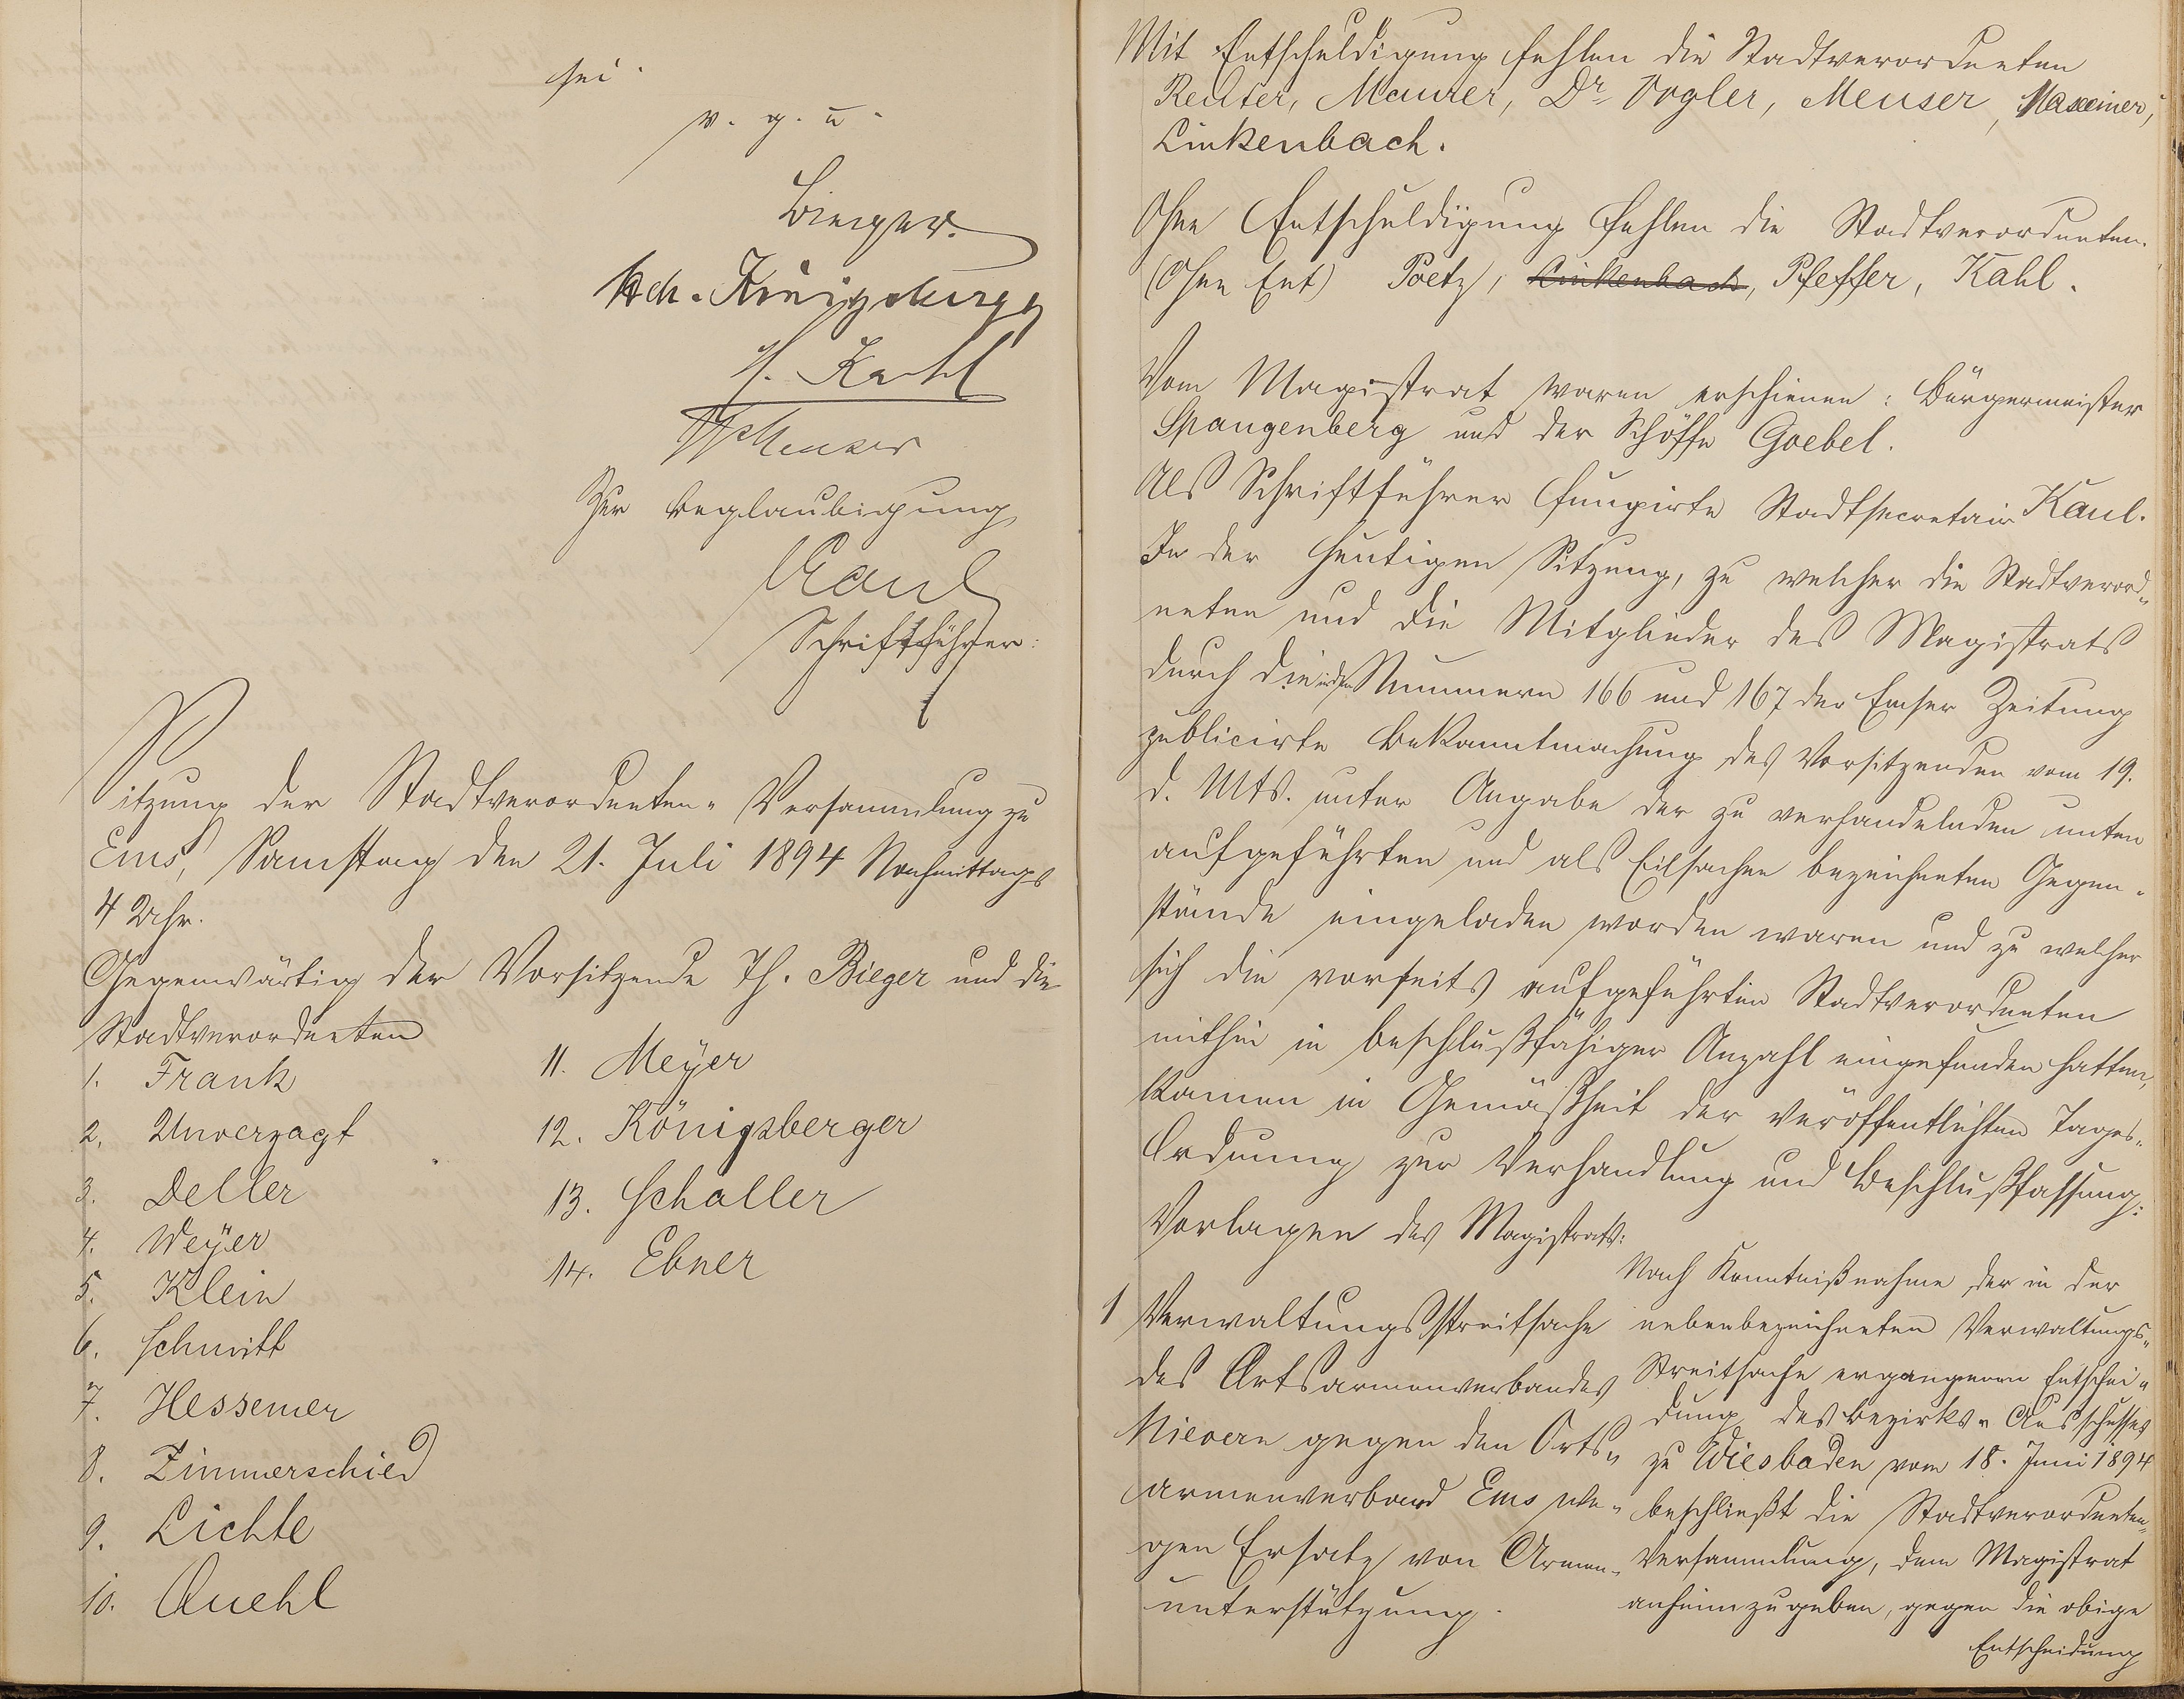 sei.
v. g. u.
Bieger.
Hch. Königsberger
H. Kahl
W Meuser
Zur Beglaubigung
Kaul
Schriftführer.
Sitzung der Stadtverordneten-Versammlung zu
Ems, Samstag den 21. Juli 1894 Nachmittags
4 Uhr.
Gegenwärtig der Vorsitzende Th. Bieger und die
Stadtverordneten
1. Frank
2. Unverzagt
3. Deller
4. Weÿer
5. Klein
6. Schmitt
7. Hessemer
8. Zimmerschied
9. Lichte
10. Quehl
11. Meÿer
12. Königsberger
13. Schaller
14. Ebner
Mit Entschuldigung fehlen die Stadtverordneten
Reuter, Maurer, Dr. Vogler, Meuser, Maxeiner,
Linkenbach.
Ohne Entschuldigung fehlen die Stadtverordneten.
(Ohne Ent) Poetz, Linkenbach, Pfeffer, Kahl.
Vom Magistrat waren erschienen: Bürgermeister
Spangenberg und der Schöffe Goebel.
Als Schriftführer fungirte Stadtsecretair Kaul.
In der heutigen Sitzung, zu welcher die Stadtverord-
neten und die Mitglieder des Magistrats
durch die in den Nummern 166 und 167 der Emser Zeitung
publicirte Bekanntmachung des Vorsitzenden vom 19.
d. Mts. unter Angabe der zu verhandelnden unten
aufgeführten und als Eilsachen bezeichneten Gegen-
stände eingeladen worden waren und zu welcher
sich die vorseits aufgeführten Stadtverordneten
mithin in beschlußfähiger Anzahl eingefunden hatten,
kamen in Gemäßheit der veröffentlichten Tages-
Ordnung zur Verhandlung und Beschlußfassung:
Vorlagen des Magistrats:
1 Verwaltungsstreitsache
des Ortsarmenverbandes
Nievern gegen den Orts-
armenverband Ems we-
gen Ersatz von Armen-
unterstützung.
Nach Kenntnißnahme der in der
nebenbezeichneten Verwaltungs-
Streitsache ergangenen Entschei-
dung des Bezirks-Ausschusses
zu Wiesbaden vom 18. Juni 1894
beschließt die Stadtverordneten-
Versammlung, dem Magistrat
anheimzugeben, gegen die obige
Entscheidung